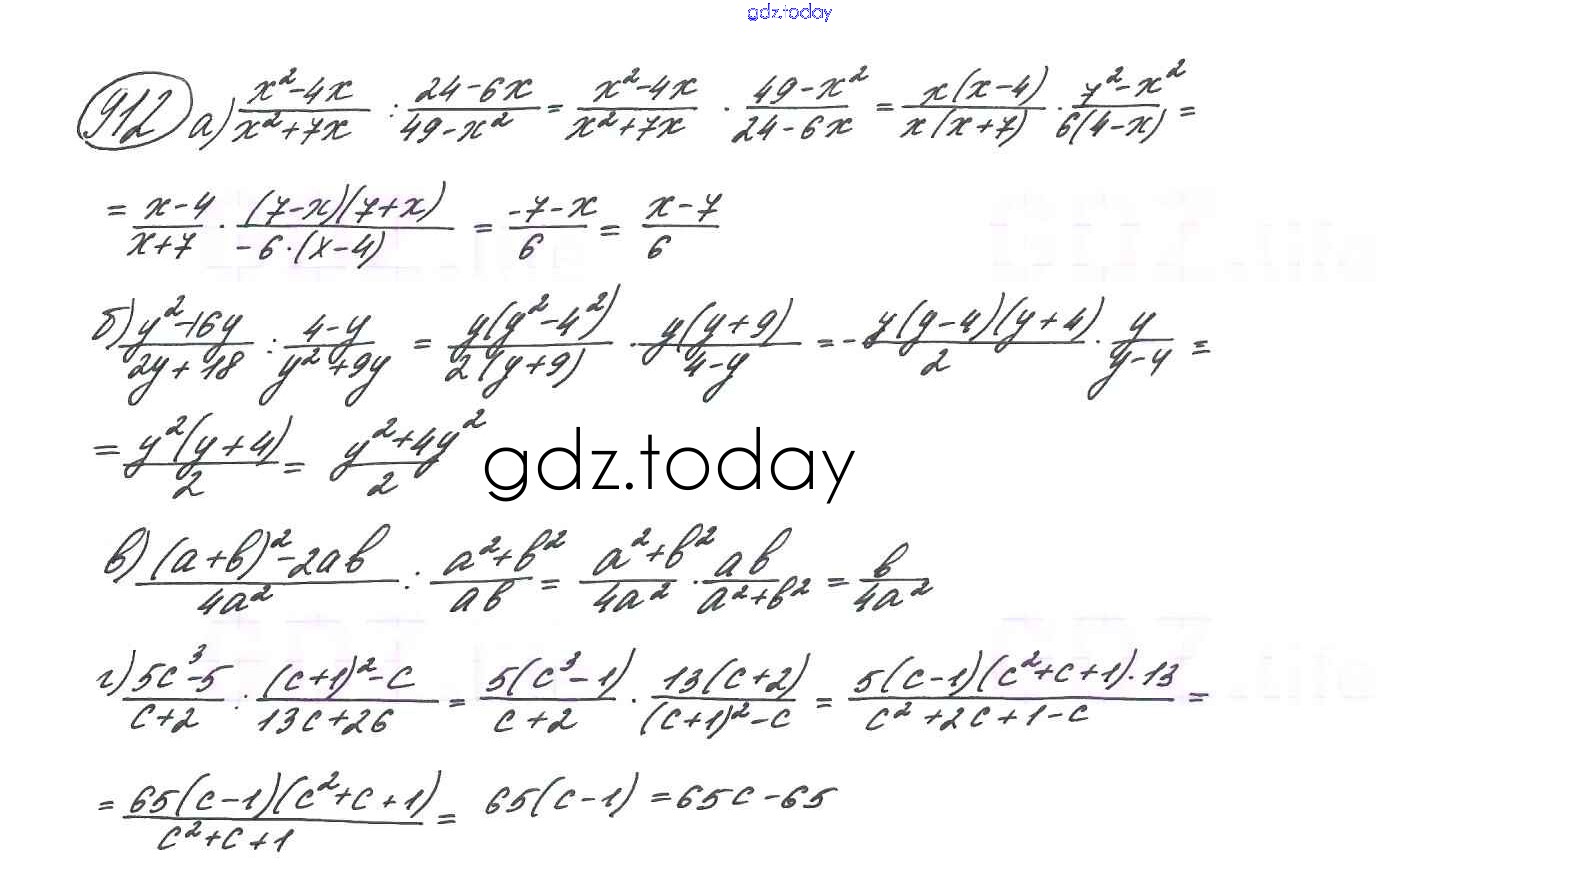 gdz.today
912 а) (x²-4x)/(x²+7x) : (24-6x)/(49-x²) = (x²-4x)/(x²+7x) · (49-x²)/(24-6x) = x(x-4)/x(x+7) · (7²-x²)/6(4-x) =
= (x-4)/(x+7) · (7-x)(7+x)/-6·(x-4) = (-7-x)/6 = (x-7)/6
б) (y²-16y)/(2y+18) : (4-y)/(y²+9y) = y(y²-4²)/2(y+9) · y(y+9)/(4-y) = - y(y-4)(y+4)/2 · y/(y-4) =
= y²(y+4)/2 = (y²+4y²)/2
gdz.today
в) ((a+b)²-2ab)/4a² : (a²+b²)/ab = (a²+b²)/4a² · ab/(a²+b²) = b/4a²
г) (5c³-5)/(c+2) : ((c+1)²-c)/(13c+26) = 5(c³-1)/(c+2) · 13(c+2)/((c+1)²-c) = 5(c-1)(c²+c+1)·13/(c²+2c+1-c) =
= 65(c-1)(c²+c+1)/(c²+c+1) = 65(c-1) = 65c-65